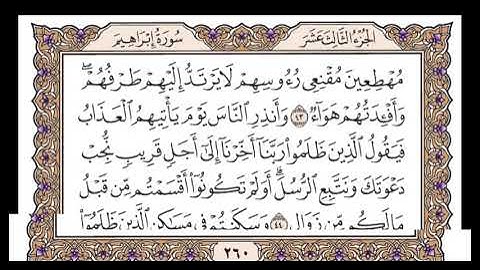 الجزء الثالث عشر
سورة إبراهيم
مُهْطِعِينَ مُقْنِعِي رُءُوسِهِمْ لَا يَرْتَدُّ إِلَيْهِمْ طَرْفُهُمْ ۖ
وَأَفْـِٔدَتُهُمْ هَوَآءٌ ٤٣ وَأَنذِرِ ٱلنَّاسَ يَوْمَ يَأْتِيهِمُ ٱلْعَذَابُ
فَيَقُولُ ٱلَّذِينَ ظَلَمُوا۟ رَبَّنَآ أَخِّرْنَآ إِلَىٰٓ أَجَلٍ قَرِيبٍ نُّجِبْ
دَعْوَتَكَ وَنَتَّبِعِ ٱلرُّسُلَ ۗ أَوَلَمْ تَكُونُوٓا۟ أَقْسَمْتُم مِّن قَبْلُ
مَا لَكُم مِّن زَوَالٍ ٤٤ وَسَكَنتُمْ فِى مَسَٰكِنِ ٱلَّذِينَ ظَلَمُوٓا۟
٢٦٠